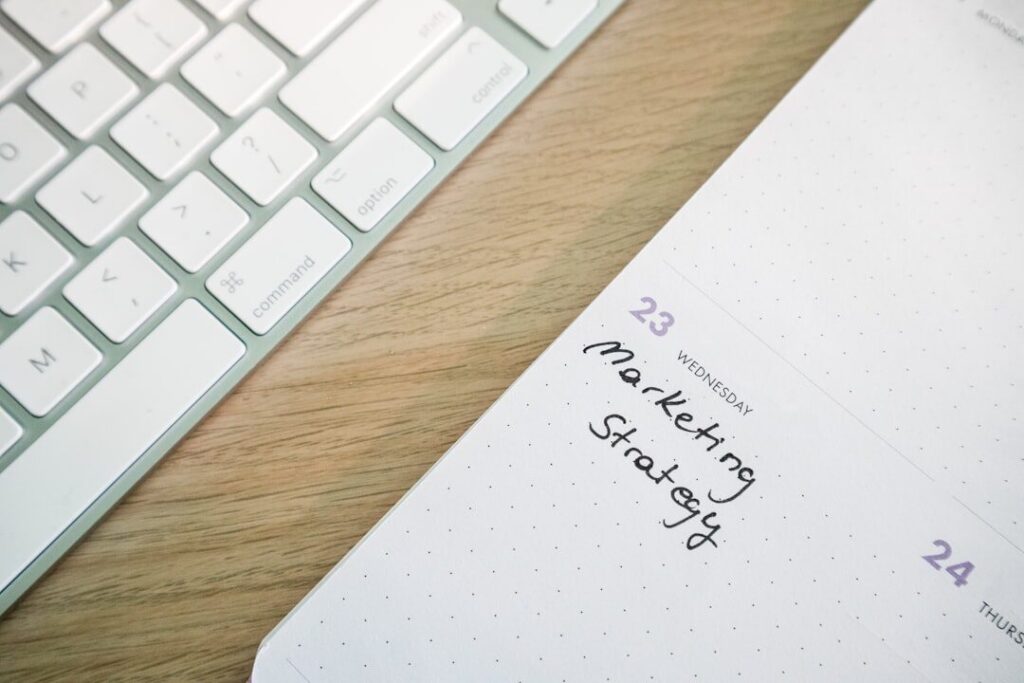 shift
control
P
:
;
?
/
option
O
L
>
.
command
K
<
,
M
MONDAY
23
WEDNESDAY
Marketing
Strategy
24
THURS